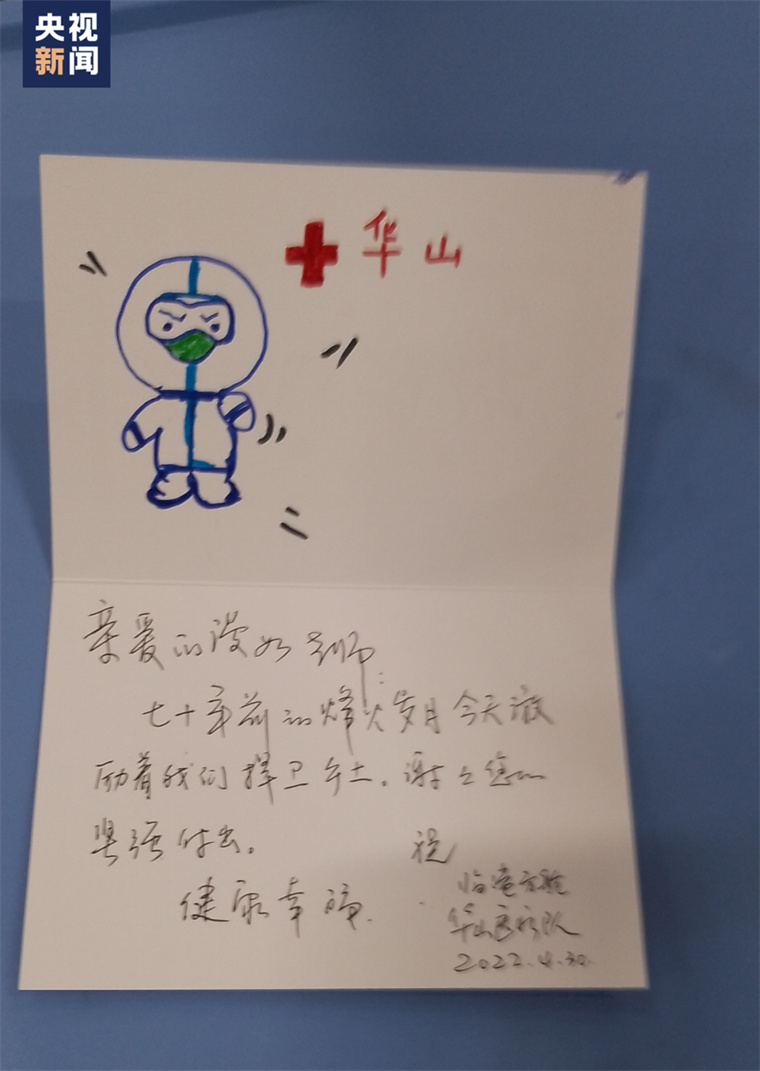 央视
新闻
华山
亲爱的 老师:
七十年前的烽火岁月今天激
励着我们捍卫乡土。谢谢您的
坚强付出。 祝
健康幸福.
临港方舱
华山医疗队
2022.4.30.